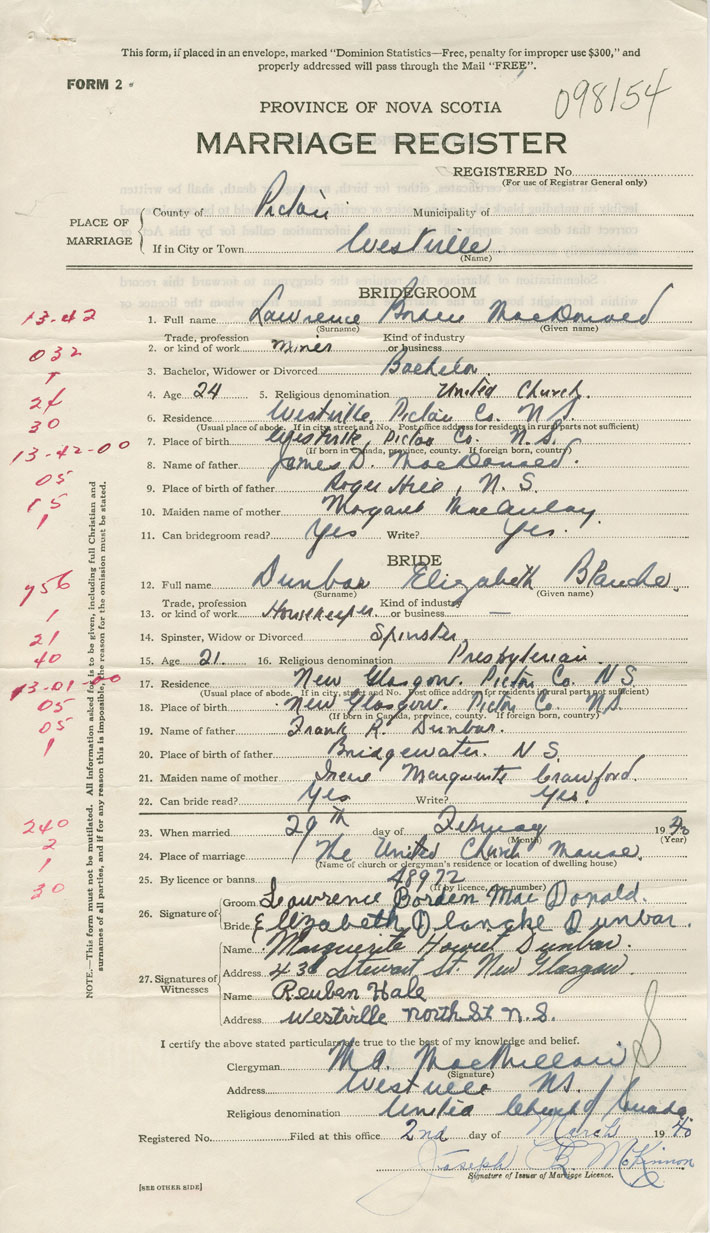 This form, if placed in an envelope, marked "Dominion Statistics—Free, penalty for improper use $300," and
properly addressed will pass through the Mail "FREE".
FORM 2
098154
PROVINCE OF NOVA SCOTIA
MARRIAGE REGISTER
REGISTERED No.
(For use of Registrar General only)
PLACE OF MARRIAGE
County of Pictou Municipality of
If in City or Town Westville
(Name)
BRIDEGROOM
13-42 1. Full name Lawrence Borden MacDonald
(Surname) (Given name)
032 2. Trade, profession or kind of work Miner Kind of industry or business
1 3. Bachelor, Widower or Divorced Bachelor.
24 4. Age 24 5. Religious denomination United Church.
30 6. Residence Westville, Pictou Co. N S.
(Usual place of abode. If in city, street and No. Post office address for residents in rural parts not sufficient)
13-42-00 7. Place of birth Westville, Pictou Co. N.S.
(If born in Canada, province, county. If foreign born, country)
05 8. Name of father James D. MacDonald.
15 9. Place of birth of father Roger Hill, N. S.
10. Maiden name of mother Margaret MacAulay.
1 11. Can bridegroom read? Yes Write? Yes.
BRIDE
756 12. Full name Dunbar Elizabeth Blanche.
(Surname) (Given name)
1 13. Trade, profession or kind of work Housekeeper. Kind of industry or business —
21 14. Spinster, Widow or Divorced Spinster.
40 15. Age 21. 16. Religious denomination Presbyterian.
13-01-00 17. Residence New Glasgow. Pictou Co. N S.
(Usual place of abode. If in city, street and No. Post office address for residents in rural parts not sufficient)
05 18. Place of birth New Glasgow. Pictou Co. N S.
(If born in Canada, province, county. If foreign born, country)
05 19. Name of father Frank R. Dunbar.
1 20. Place of birth of father Bridgewater. N S.
21. Maiden name of mother Irene Marguerite Crawford.
22. Can bride read? Yes Write? Yes.
240 23. When married 29th day of February 1940
(Month) (Year)
2 24. Place of marriage The United Church Manse.
(Name of church or clergyman's residence or location of dwelling house)
1 25. By licence or banns 48972
(If by licence, give number)
30
26. Signature of
Groom Lawrence Borden MacDonald.
Bride Elizabeth Blanche Dunbar.
27. Signatures of Witnesses
Name Marguerite Dunbar.
Address 430 Stewart St. New Glasgow.
Name Reuben Hale
Address Westville North St N.S.
NOTE.—This form must not be mutilated. All information asked for is to be given, including full Christian and
surnames of all parties, and if for any reason this is impossible, the reason for the omission must be stated.
I certify the above stated particulars are true to the best of my knowledge and belief.
Clergyman M A. MacMillan
(Signature)
Address Westville NS.
Religious denomination United Church of Canada
Registered No. Filed at this office 2nd day of March 1940
Joseph B. McKinnon
Signature of Issuer of Marriage Licence.
[SEE OTHER SIDE]